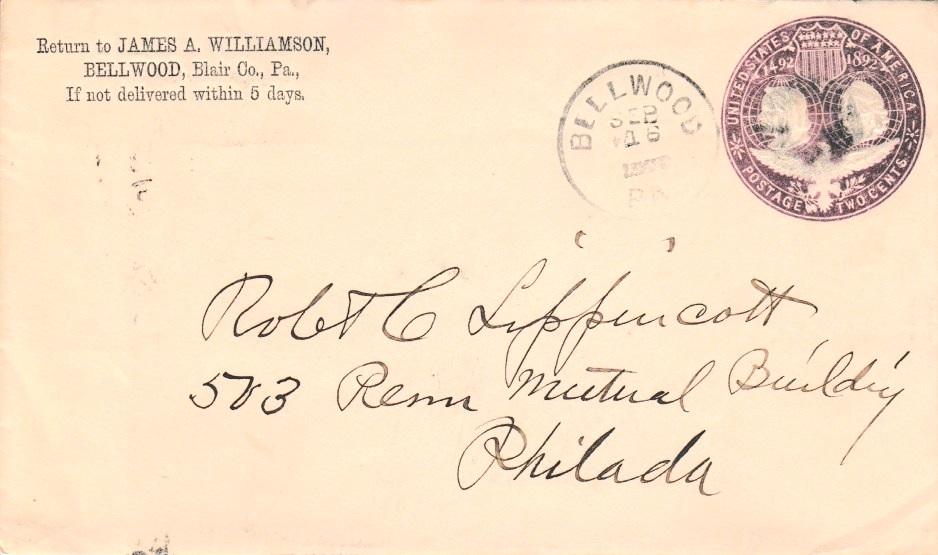 Return to JAMES A. WILLIAMSON,
BELLWOOD, Blair Co., Pa.,
If not delivered within 5 days.
BELLWOOD
SEP
16
PA
UNITED STATES OF AMERICA
1492 1892
POSTAGE TWO CENTS
Robt C Lippincott
503 Penn Mutual Building
Philada